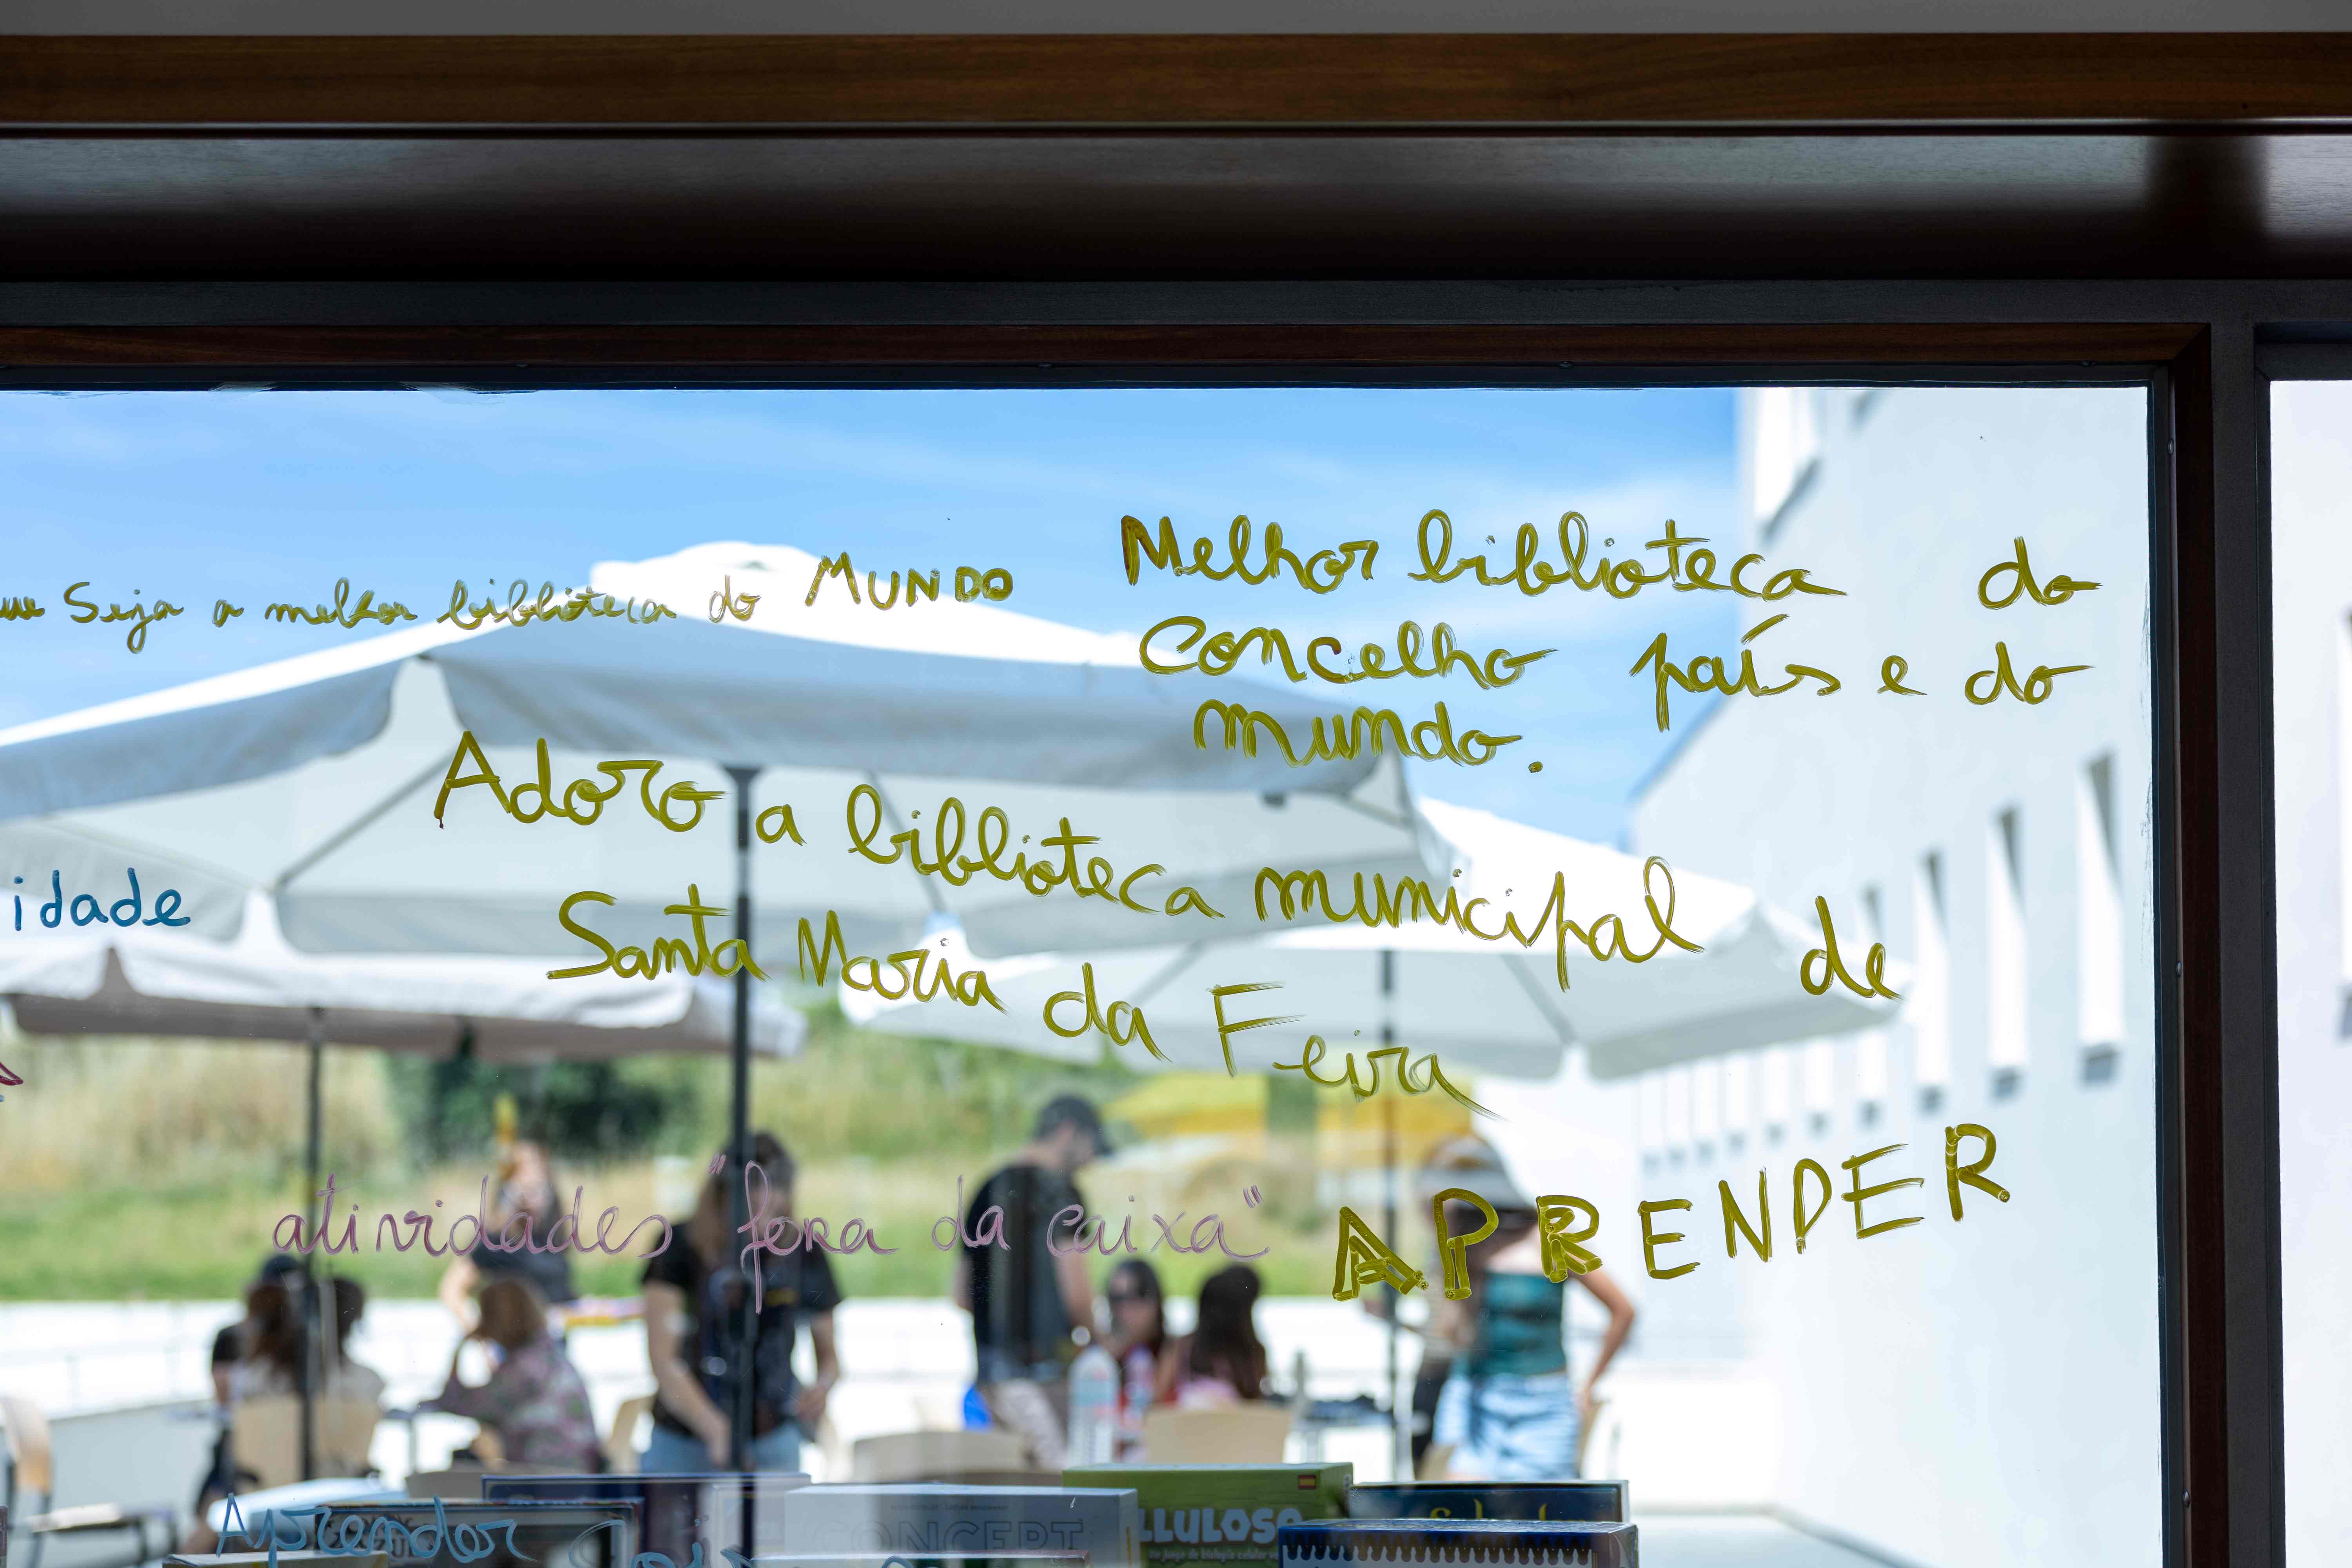 Seja a melhor biblioteca do MUNDO
Melhor biblioteca do
Concelho país e do
mundo.
Adoro a biblioteca municipal de
Santa Maria da Feira
idade
atividades "fora da caixa"
APRENDER
Aprender
CONCEPT
LLULOSO